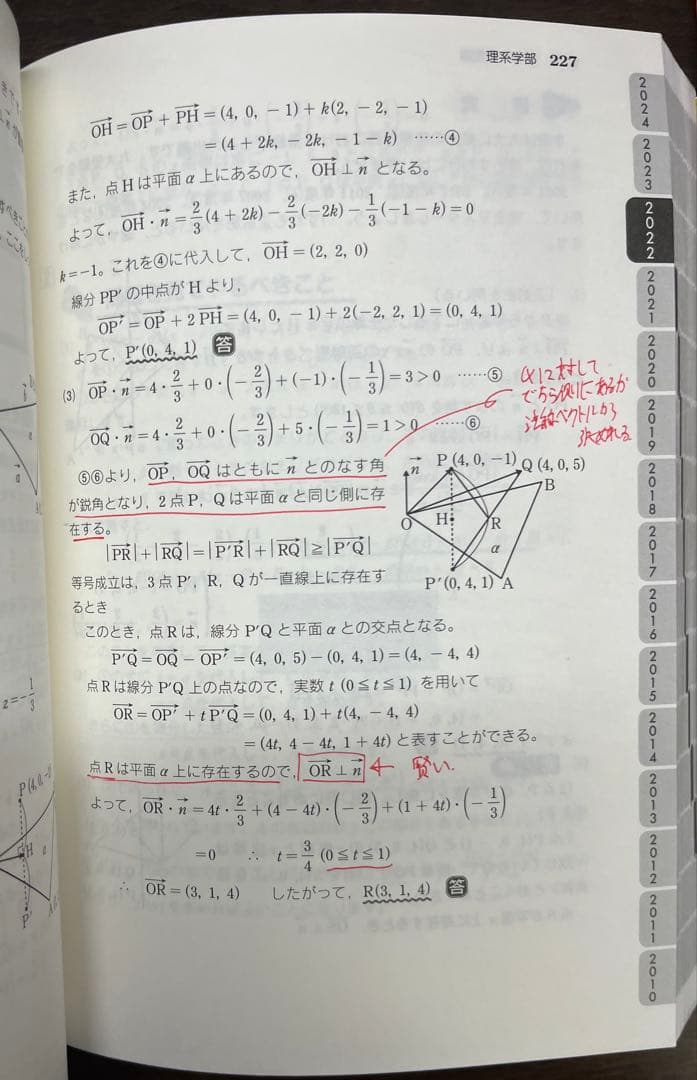 理系学部 227
OH→ = OP→ + PH→ = (4, 0, −1) + k(2, −2, −1)
= (4 + 2k, −2k, −1 − k) ……④
また，点Hは平面α上にあるので，OH→ ⊥ n→ となる。
よって，OH→ · n→ = 2/3(4 + 2k) − 2/3(−2k) − 1/3(−1 − k) = 0
k = −1。これを④に代入して，OH→ = (2, 2, 0)
線分PP′の中点がHより，
OP′→ = OP→ + 2PH→ = (4, 0, −1) + 2(−2, 2, 1) = (0, 4, 1)
よって，P′(0, 4, 1) 答
(3) OP→ · n→ = 4 · 2/3 + 0 · (−2/3) + (−1) · (−1/3) = 3 > 0 ……⑤
OQ→ · n→ = 4 · 2/3 + 0 · (−2/3) + 5 · (−1/3) = 1 > 0 ……⑥
αに対して
どちら側にあるか
法線ベクトルから
決めれる
⑤⑥より，OP→，OQ→ はともに n→ とのなす角
が鋭角となり，2点P，Qは平面αと同じ側に存
在する。
|PR→| + |RQ→| = |P′R→| + |RQ→| ≧ |P′Q→|
等号成立は，3点P′，R，Qが一直線上に存在す
るとき
n→
P(4, 0, −1)
Q(4, 0, 5)
B
O
H
R
α
P′(0, 4, 1)
A
このとき，点Rは，線分P′Qと平面αとの交点となる。
P′Q→ = OQ→ − OP′→ = (4, 0, 5) − (0, 4, 1) = (4, −4, 4)
点Rは線分P′Q上の点なので，実数t (0≦t≦1) を用いて
OR→ = OP′→ + tP′Q→ = (0, 4, 1) + t(4, −4, 4)
= (4t, 4 − 4t, 1 + 4t) と表すことができる。
点Rは平面α上に存在するので，OR→ ⊥ n→ ← 賢い．
よって，OR→ · n→ = 4t · 2/3 + (4 − 4t) · (−2/3) + (1 + 4t) · (−1/3)
= 0 ∴ t = 3/4 (0≦t≦1)
∴ OR→ = (3, 1, 4) したがって，R(3, 1, 4) 答
2024
2023
2022
2021
2020
2019
2018
2017
2016
2015
2014
2013
2012
2011
2010
z = −1/3
P(4, 0, −
H
α
P′